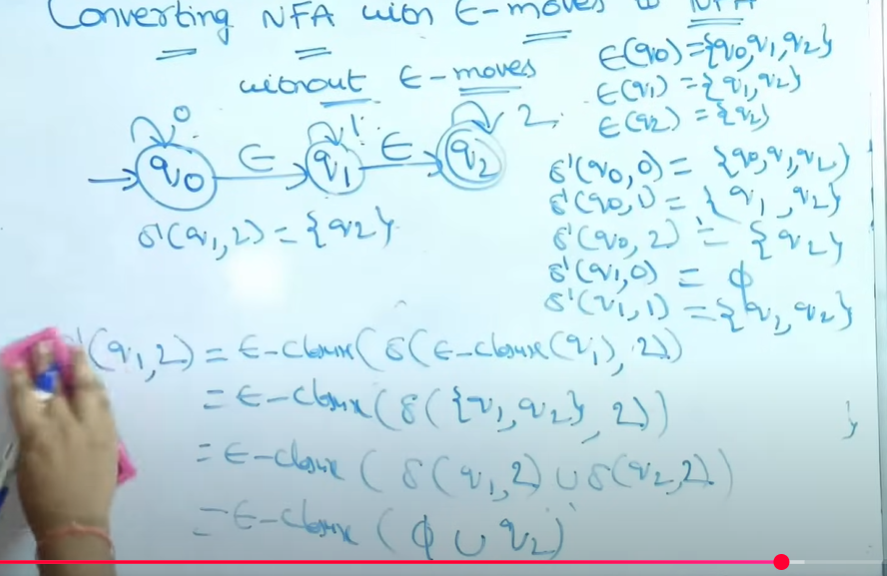 Converting NFA with ϵ-moves to NFA
without ϵ-moves
ϵ(q0)={q0,q1,q2}
ϵ(q1)={q1,q2}
ϵ(q2)={q2}
0
1
2
q0
ϵ
q1
ϵ
q2
δ'(q1,2)={q2}
δ'(q0,0)={q0,q1,q2}
δ'(q0,1)={q1,q2}
δ'(q0,2)={q2}
δ'(q1,0)=ϕ
δ'(q1,1)={q1,q2}
(q1,2)=ϵ-closure(δ(ϵ-closure(q1),2))
=ϵ-closure(δ({q1,q2},2))
=ϵ-closure(δ(q1,2)∪δ(q2,2))
=ϵ-closure(ϕ∪q2)
}